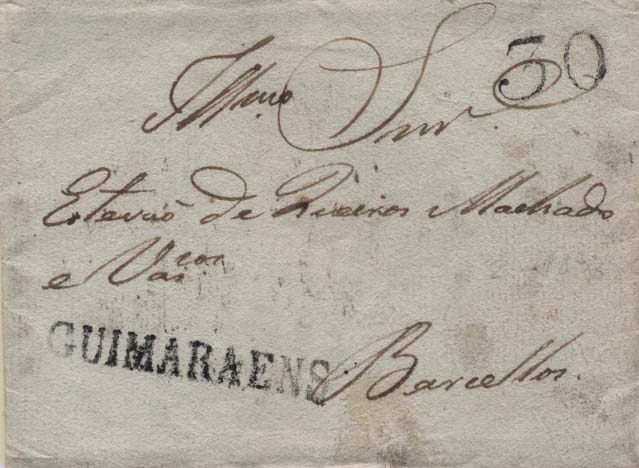 30
Illmo Snr.
Estevaõ de Queiros Machado
e Vascos
GUIMARAENS
Barcellos.